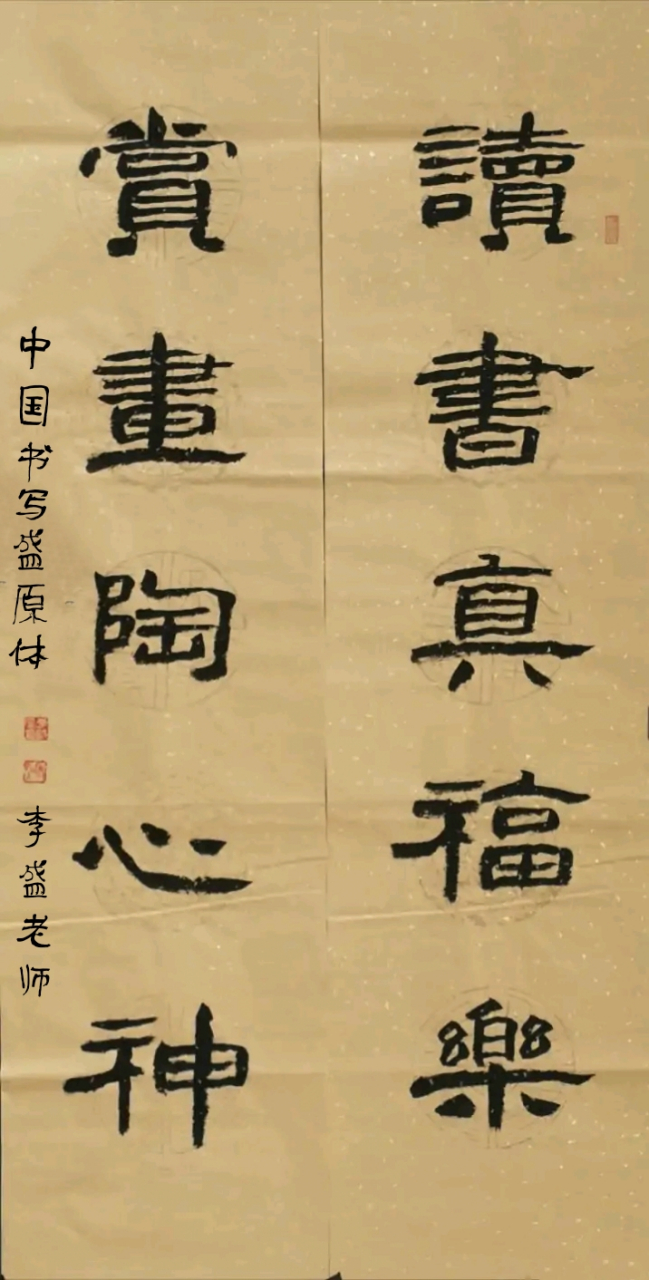 讀書真福樂
賞畫陶心神
中国书写盛原体
李盛老师